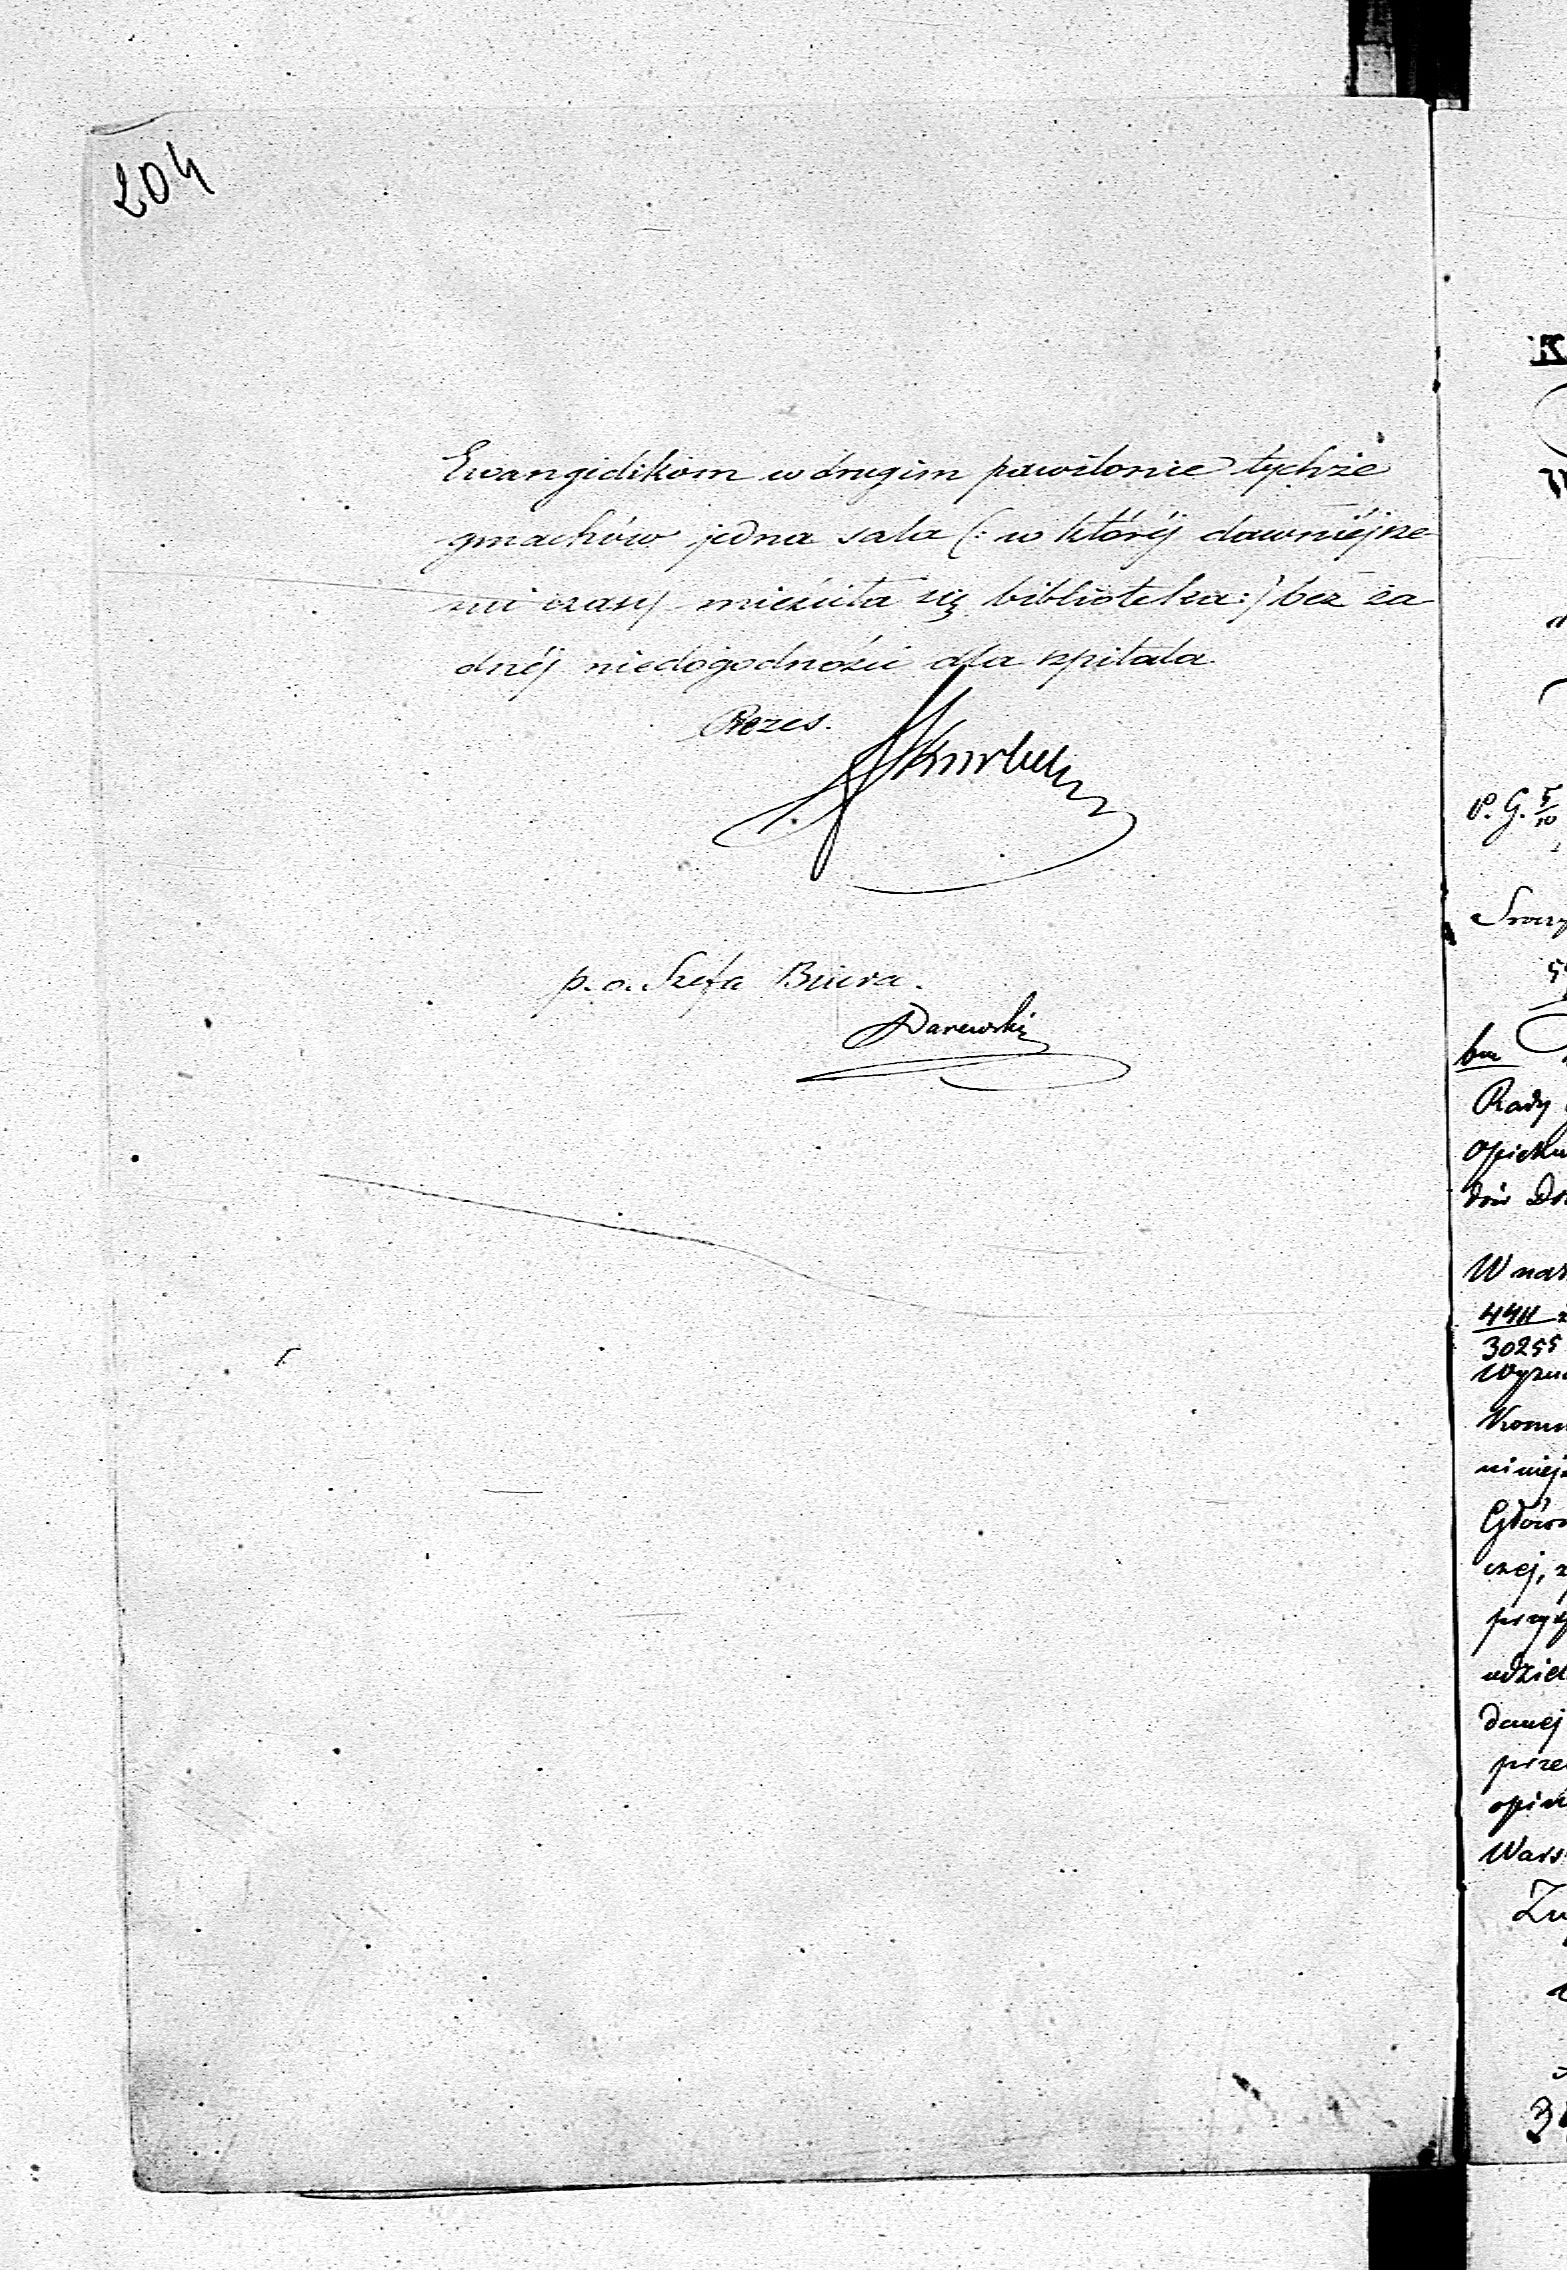 204
Ewangielikom w drugim pawilonie tychże
gmachów jedna sala (: w któréj dawniéjsze-
mi czasy mieściła się biblioteka:) bez ża-
dnéj niedogodności dla szpitala.
Prezes.
Skarbek
p. o. Szefa Biura.
Darewski
P. G. 5/10
bm
Rady
Opieku
dnia
W nas
4411
30255
Wyzn
Komm
niniej
Główn
czej,
przyz
udziel
danej
prze
opiek
Wars